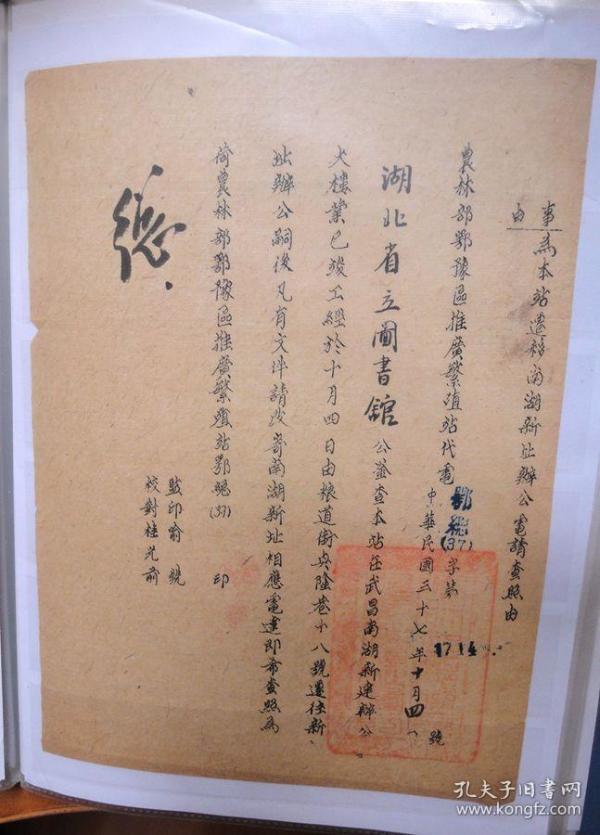 事由 為本站遷移南湖新址辦公電請查照由
農林部鄂豫區推廣繁殖站代電 鄂總(37)字第1714號
中華民國三十七年十月四
湖北省立圖書館公鑒查本站在武昌南湖新建辦公
大樓業已竣工經於十月四日由糧道街興隆巷十八號遷往新
址辦公嗣後凡有文件請改寄南湖新址相應電達即希查照為
荷農林部鄂豫區推廣繁殖站鄂總(37) 印
監印俞
校對桂光前
孔夫子旧书网
www.kongfz.com